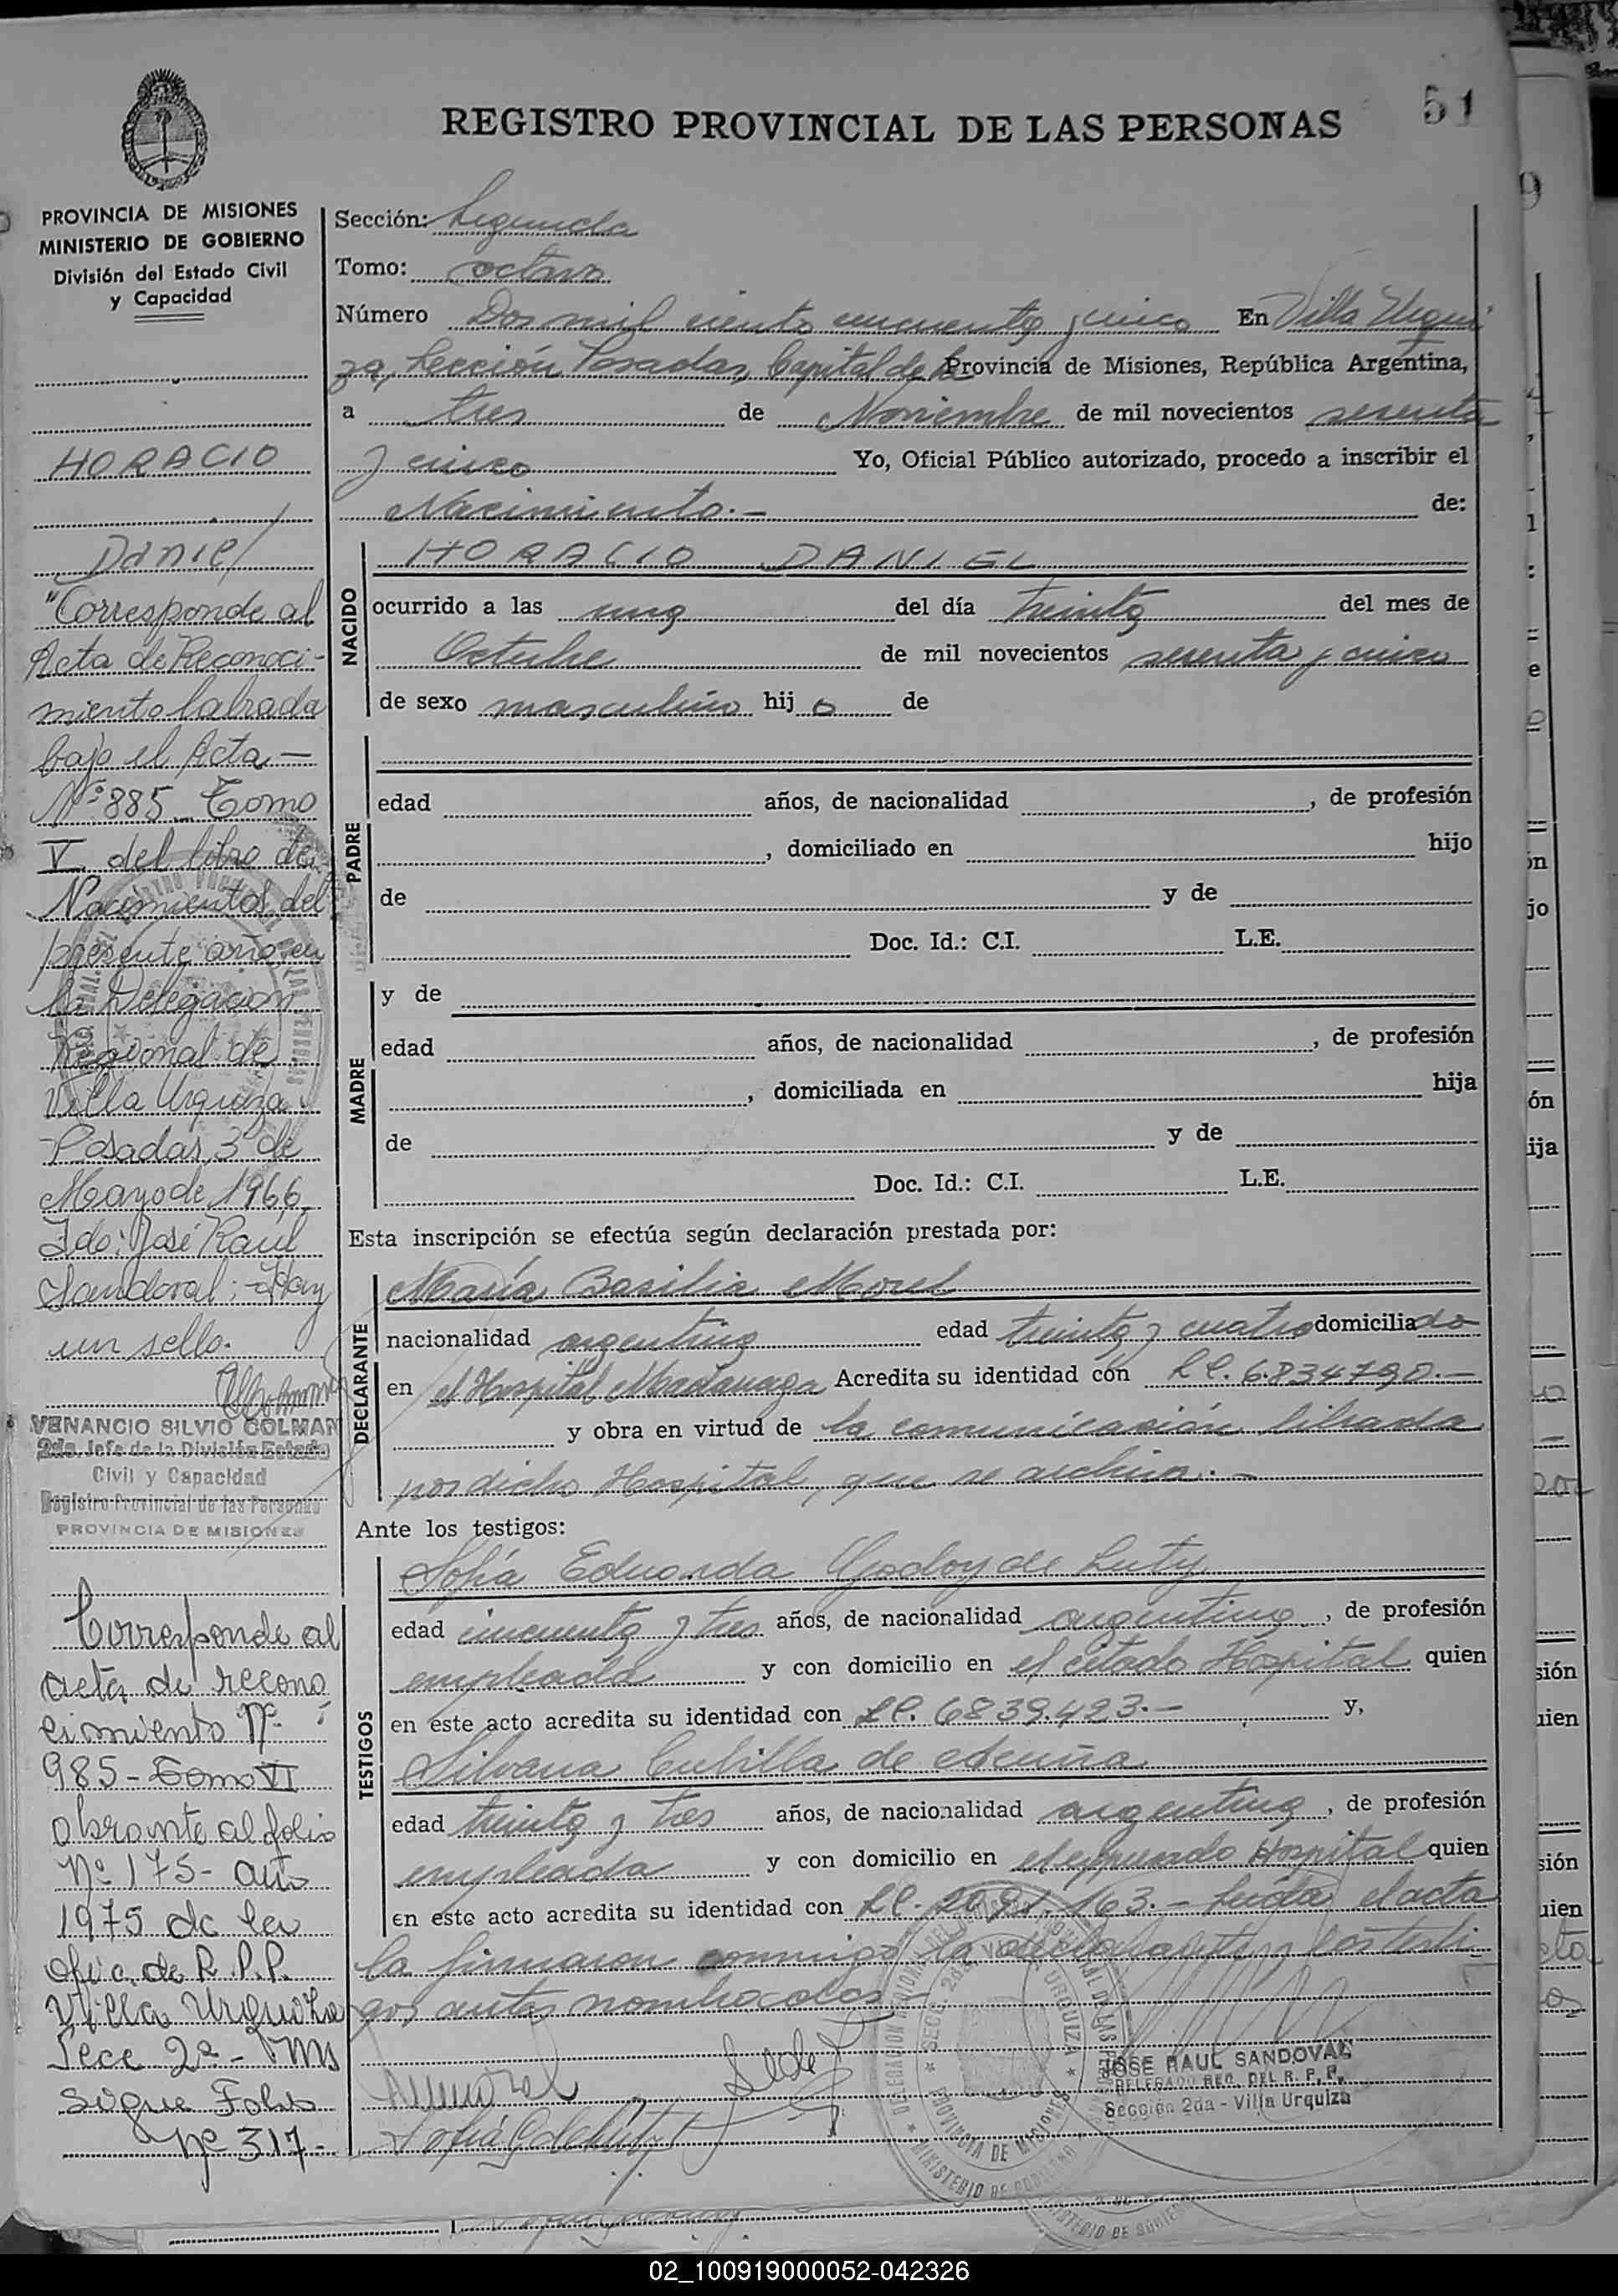 REGISTRO PROVINCIAL DE LAS PERSONAS
51
PROVINCIA DE MISIONES
MINISTERIO DE GOBIERNO
División del Estado Civil
y Capacidad
HORACIO
Daniel
"Corresponde al
Acta de Reconoci-
miento labrada
bajo el Acta —
Nº 885 Tomo
V del libro de
Nacimientos del
presente año en
la Delegación
Regional de
Villa Urquiza
Posadas, 3 de
Mayo de 1966
Fdo: José Raúl
Sandoval: Hay
un sello.
VENANCIO SILVIO COLMAN
2do. Jefe de la División Estado
Civil y Capacidad
Registro Provincial de las Personas
PROVINCIA DE MISIONES
Corresponde al
acta de recono
cimiento Nº
985 - Tomo VI
obrante al folio
Nº 175 - año
1975 de la
Ofic. de R.P.P.
Villa Urquiza
Secc 2ª -
sigue Folio
Nº 317-
Sección: Segunda
Tomo: octavo
Número Dos mil ciento cincuenta y cinco En Villa Urqui
za, Sección Posadas, Capital de la Provincia de Misiones, República Argentina,
a tres de Noviembre de mil novecientos sesenta
y cinco Yo, Oficial Público autorizado, procedo a inscribir el
Nacimiento.- de:
NACIDO
HORACIO DANIEL
ocurrido a las una del día treinta del mes de
Octubre de mil novecientos sesenta y cinco
de sexo masculino hijo de
PADRE
edad años, de nacionalidad , de profesión
, domiciliado en hijo
de y de
Doc. Id.: C.I. L.E.
MADRE
y de
edad años, de nacionalidad , de profesión
, domiciliada en hija
de y de
Doc. Id.: C.I. L.E.
Esta inscripción se efectúa según declaración prestada por:
DECLARANTE
María Basilia Morel
nacionalidad argentina edad treinta y cuatro domiciliado
en el Hospital Madariaga Acredita su identidad con LC. 6.834790.-
y obra en virtud de la comunicación librada
por dicho Hospital, que se archiva.-
Ante los testigos:
TESTIGOS
Sofía Eduarda Godoy de Luty
edad cincuenta y tres años, de nacionalidad argentina, de profesión
empleada y con domicilio en el citado Hospital quien
en este acto acredita su identidad con LC. 6839.423.- y,
Silvana Cubilla de Acuña
edad treinta y tres años, de nacionalidad argentina, de profesión
empleada y con domicilio en el expresado Hospital quien
en este acto acredita su identidad con LC. 163.- Leída el acta
la firmaron conmigo la declarante y los testi
gos antes nombrados-
JOSE RAUL SANDOVAL
DELEGADO REG. DEL R. P. P.
Sección 2da - Villa Urquiza
02_100919000052-042326